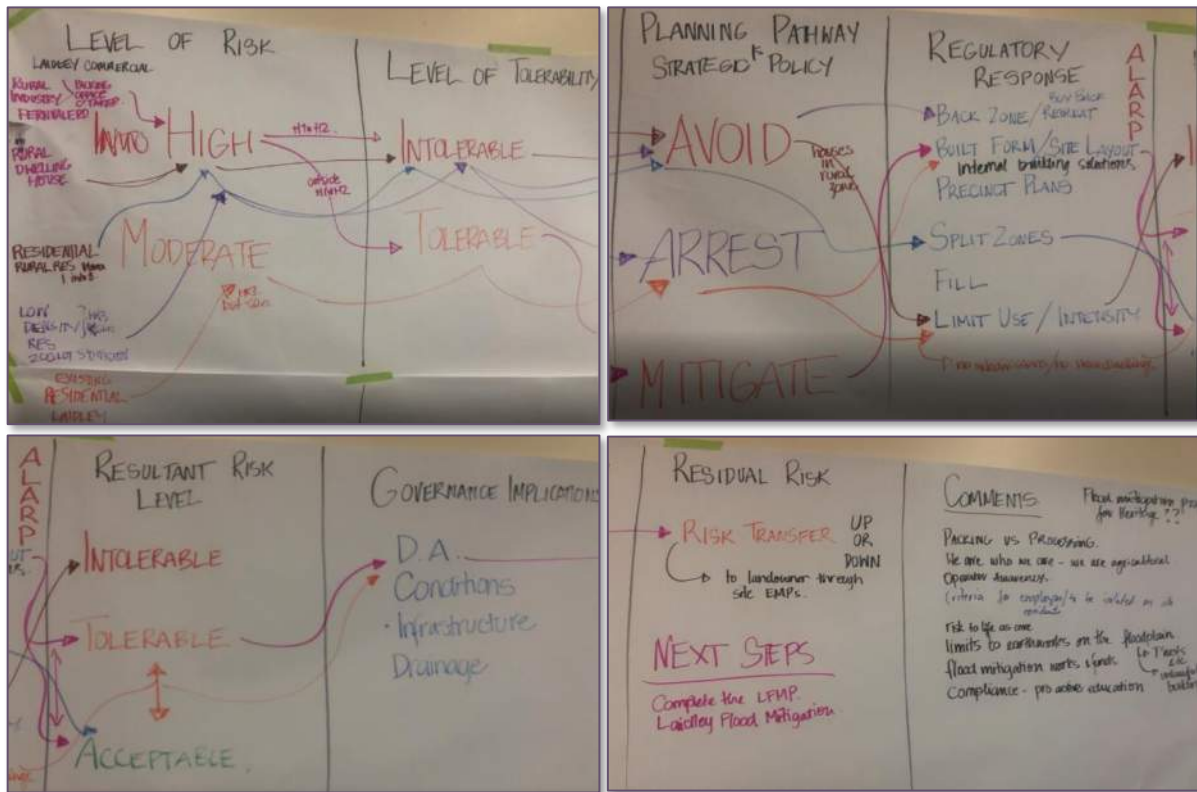 LEVEL OF RISK
LAIDLEY COMMERCIAL
RURAL
INDUSTRY
PACKING
OFFICE
FERNVALE RD
HIGH
H1 to H2
outside
RURAL
DWELLING
HOUSE
RESIDENTIAL
RURAL RES
MODERATE
LOW
DENSITY
RES
EXISTING
RESIDENTIAL
LAIDLEY
LEVEL OF TOLERABILITY
INTOLERABLE
TOLERABLE
PLANNING PATHWAY
STRATEGIC POLICY
AVOID
houses
in
rural
zone
ARREST
MITIGATE
REGULATORY
RESPONSE
BUY BACK
BACK ZONE / RETREAT
BUILT FORM / SITE LAYOUT
internal building solutions
PRECINCT PLANS
SPLIT ZONES
FILL
LIMIT USE / INTENSITY
ALARP
ALARP
RESULTANT RISK
LEVEL
INTOLERABLE
TOLERABLE
ACCEPTABLE.
GOVERNANCE IMPLICATIONS
D.A.
Conditions
· Infrastructure
Drainage
RESIDUAL RISK
RISK TRANSFER
UP
OR
DOWN
to landowner through
site EMPs.
NEXT STEPS
Complete the LFMP.
Laidley Flood Mitigation.
COMMENTS
Flood mitigation
for Heritage ??
PACKING VS PROCESSING.
We are who we are - we are agricultural
Operator awareness.
risk to life as core
limits to earthworks on the floodplain.
flood mitigation works
Compliance - pro active education